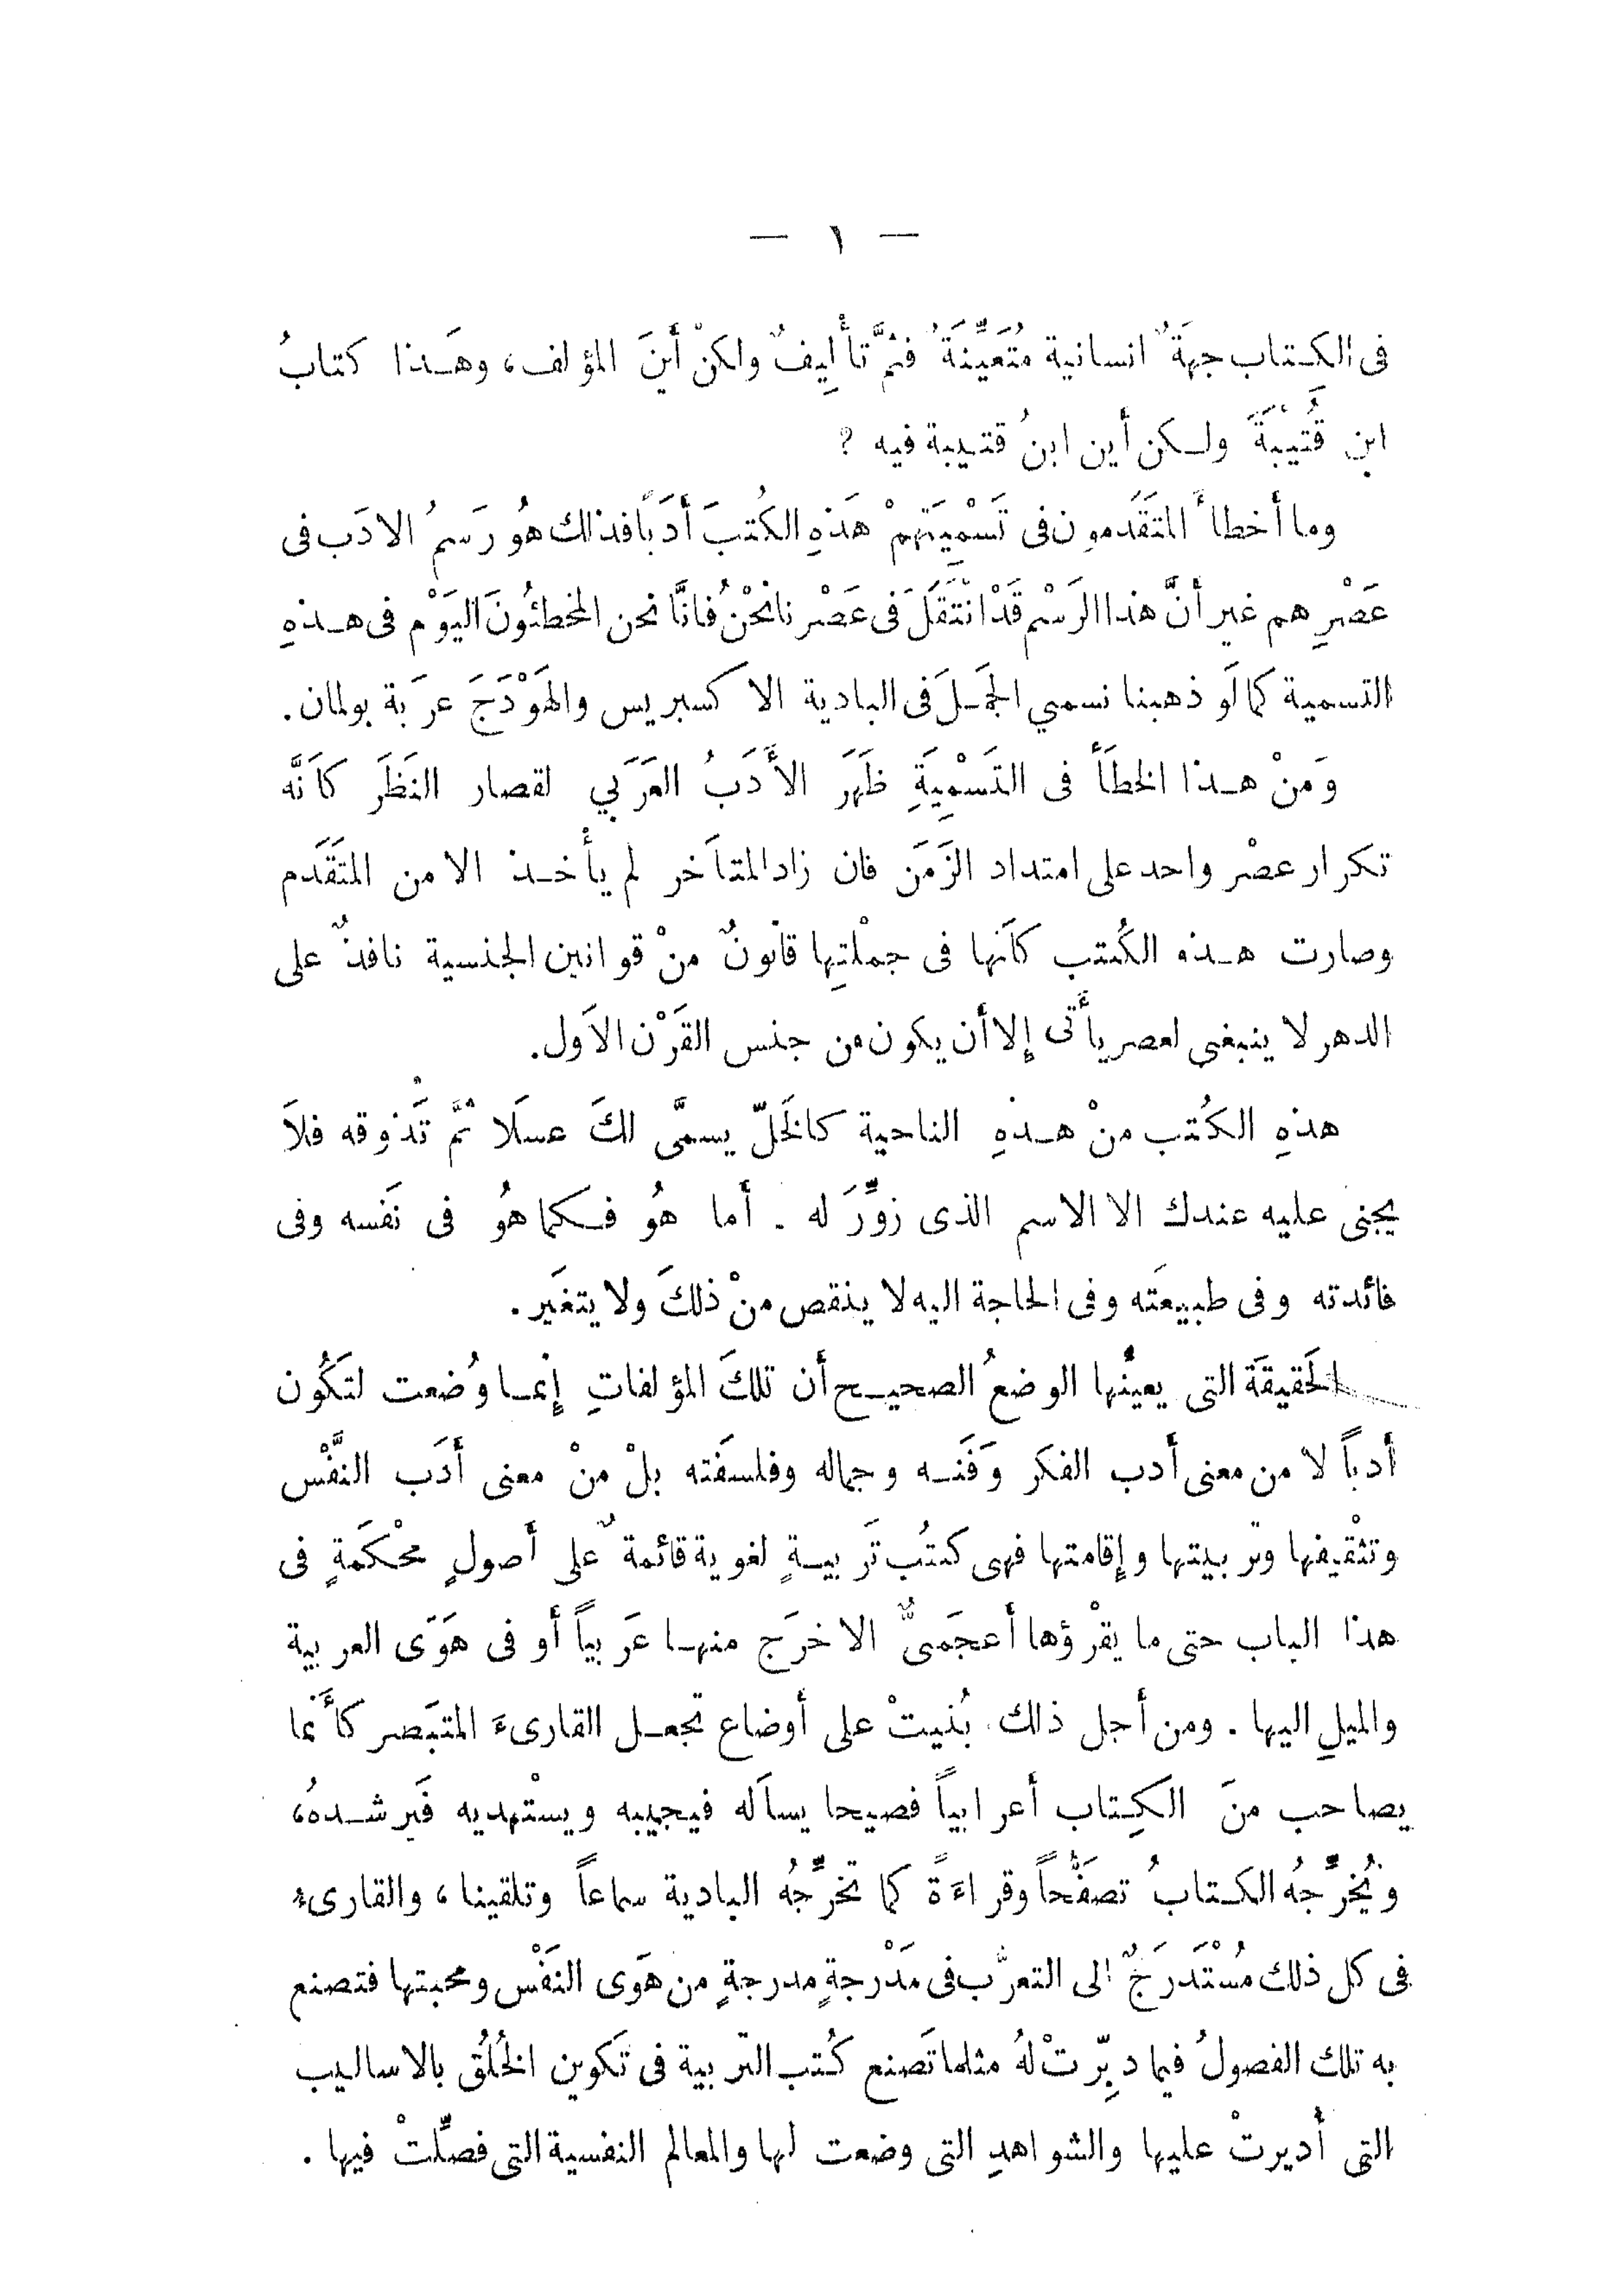 — ١ —
فى الكتاب جهةٌ انسانية مُتَعَيِّنَةٌ فثمَّ تأليفٌ ولكنْ أينَ المؤلف، وهَذا كتابُ
ابنِ قُتَيْبَةَ ولكن أين ابنُ قتيبة فيه ؟
وما أخطأ المتَقَدمون فى تَسْمِيَتِهِمْ هَذهِ الكُتبَ أَدَبًا فذلك هُو رَسمُ الادَب فى
عَصْرِهم غير أنَّ هذا الرَسْم قَدْ انْتَقَلَ فى عَصْرنا نحْنُ فانَّا نحن المخطئُونَ اليَوْم فى هذهِ
التسمية كما لَو ذهبنا نسمي الجمَلَ فى البادية الاكسبريس والهَوْدَجَ عرَبة بولمان.
وَمنْ هذا الخطَأ فى التَسْمِيَةِ ظَهَر الأَدَبُ العَرَبي لقصار النَظَر كأنَّه
تكرار عصْر واحد على امتداد الزَمَن فان زاد المتأخر لم يأخذ الا من المتَقَدم
وصارت هذه الكُتب كأنها فى جمْلتِها قانونٌ منْ قوانين الجنسية نافذٌ على
الدهر لا ينبغى لعصر يأتى إلا أن يكون من جنس القَرْن الاَول.
هذهِ الكُتب منْ هذهِ الناحية كالخَلّ يسمَّى لكَ عسلَا ثمَّ تَذْوقه فلاَ
يجنى عليه عندك الا الاسم الذى زوِّرَ له . أما هُو فكما هُو فى نَفسه وفى
فائدته وفى طبيعَته وفى الحاجة اليه لا ينقص منْ ذلكَ ولا يتغَير.
الحَقيقَة التى يعيِّنُها الوضعُ الصحيح أن تلكَ المؤلفاتِ إنما وُضعت لتَكُون
أدباً لا من معنى أدب الفكَر وَفَنه وجماله وفلسَفته بلْ منْ معنى أدَب النَّفْس
وتثْقيفها وتربيتها وإقامتها فهى كتُب تَربيةٍ لغوية قائمةٌ على أصولٍ محْكَمةٍ فى
هذا الباب حتى ما يقرْؤها أعجَمىٌّ الا خرَج منها عَربياً أو فى هَوَى العربية
والميلِ اليها . ومن أجل ذلك بُنيتْ على أوضاع تجعل القارىءَ المتبَصر كأَنما
يصاحب منَ الكِتاب أعرابياً فصيحا يسأله فيجيبه ويستْهديه فَيرشدهُ،
وُيخرِّجهُ الكتابُ تصفُّحاً وقراءَةً كما تخرِّجهُ البادية سماعاً وتلقينا، والقارىء
فى كل ذلك مُسْتَدرَجٌ الى التعرُّب فى مَدْرجةٍ مدرجةٍ من هَوى النَفْس ومحبتها فتصنع
به تلك الفصولُ فيما دبِّرتْ لهُ مثلما تَصنع كُتب التربية فى تَكوين الخُلُق بالاساليب
التى أُديرتْ عليها والشواهدِ التى وضعت لها والمعالم النفسية التى فصِّلتْ فيها .